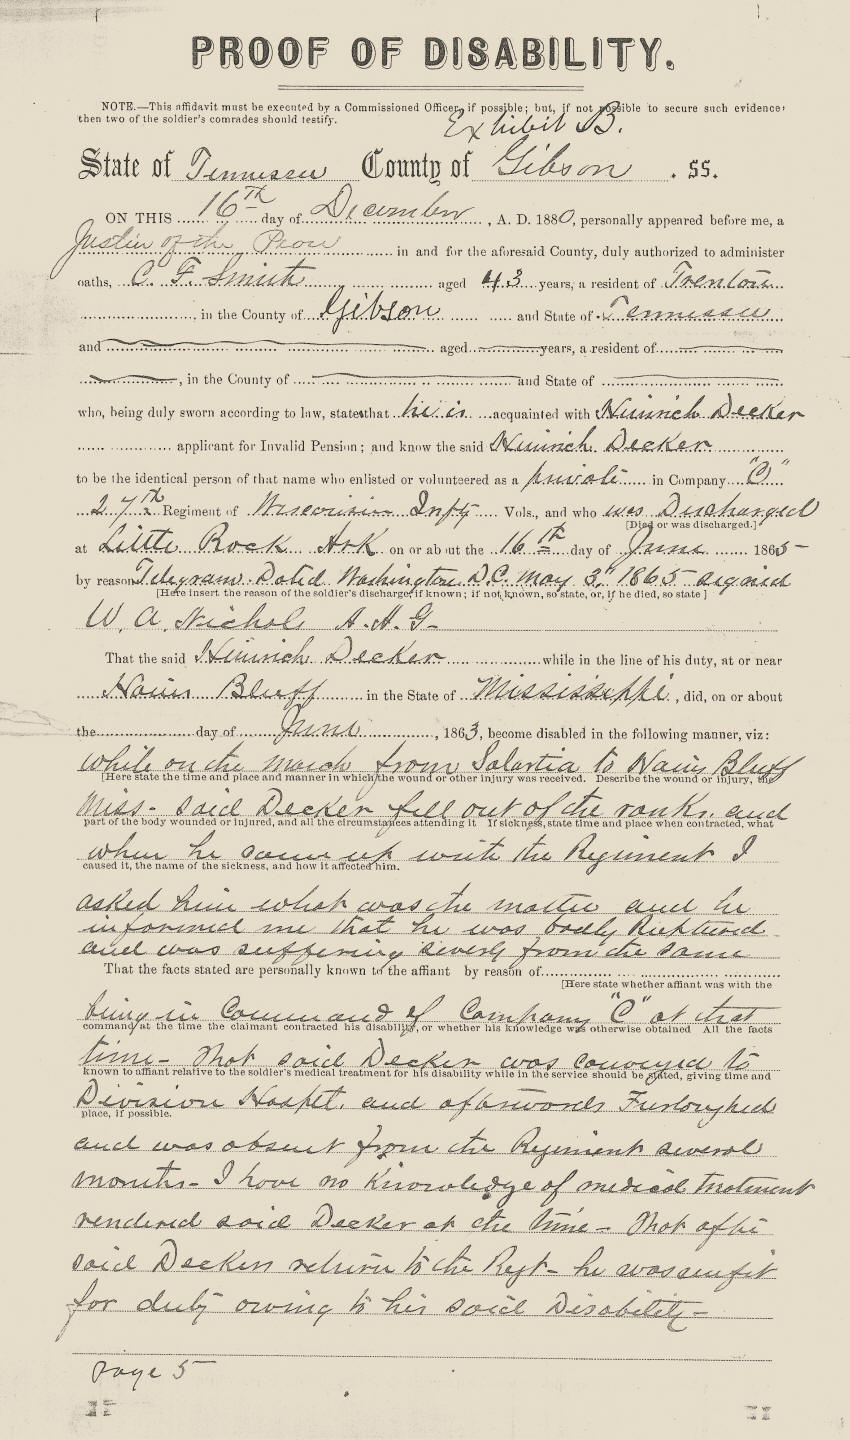 PROOF OF DISABILITY.
NOTE.—This affidavit must be executed by a Commissioned Officer, if possible; but, if not possible to secure such evidence,
then two of the soldier's comrades should testify.
Exhibit B.
State of Tennessee County of Gibson . ss.
ON THIS 16th day of December, A. D. 1880, personally appeared before me, a
Justice of the Peace in and for the aforesaid County, duly authorized to administer
oaths, C. F. Smith aged 43 years, a resident of Trenton
, in the County of Gibson and State of Tennessee
and aged years, a resident of
, in the County of and State of
who, being duly sworn according to law, states that he is acquainted with Heinrich Decker
applicant for Invalid Pension; and know the said Heinrich Decker
to be the identical person of that name who enlisted or volunteered as a private in Company "C"
27th Regiment of Wisconsin Infty Vols., and who was Discharged
[Died or was discharged.]
at Little Rock Ark on or about the 16th day of June 1865
by reason Telegram Dated Washington D.C. May 3, 1865 signed
[Here insert the reason of the soldier's discharge, if known; if not known, so state, or, if he died, so state]
W. A. Nichols A. A. G-
That the said Heinrich Decker while in the line of his duty, at or near
Hains Bluff in the State of Mississippi, did, on or about
the day of June, 1863, become disabled in the following manner, viz:
while on the march from Salartia to Hains Bluff
[Here state the time and place and manner in which the wound or other injury was received. Describe the wound or injury, the
Miss- said Decker fell out of the ranks. and
part of the body wounded or injured, and all the circumstances attending it If sickness, state time and place when contracted, what
when he came up with the Regiment I
caused it, the name of the sickness, and how it affected him.
asked him what was the matter and he
informed me that he was badly Ruptured
and was suffering severly from the same
That the facts stated are personally known to the affiant by reason of
[Here state whether affiant was with the
being in Command of Company "C" at that
command at the time the claimant contracted his disability, or whether his knowledge was otherwise obtained All the facts
time- That said Decker was conveyed to
known to affiant relative to the soldier's medical treatment for his disability while in the service should be stated, giving time and
Division Hospt. and afterwards Furloughed
place, if possible.
and was absent from the Regiment several
months- I have no Knowledge of medical treatment
rendered said Decker at the time- That after
said Deckers return to the Regt- he was unfit
for duty owing to his said Disability-
page 5